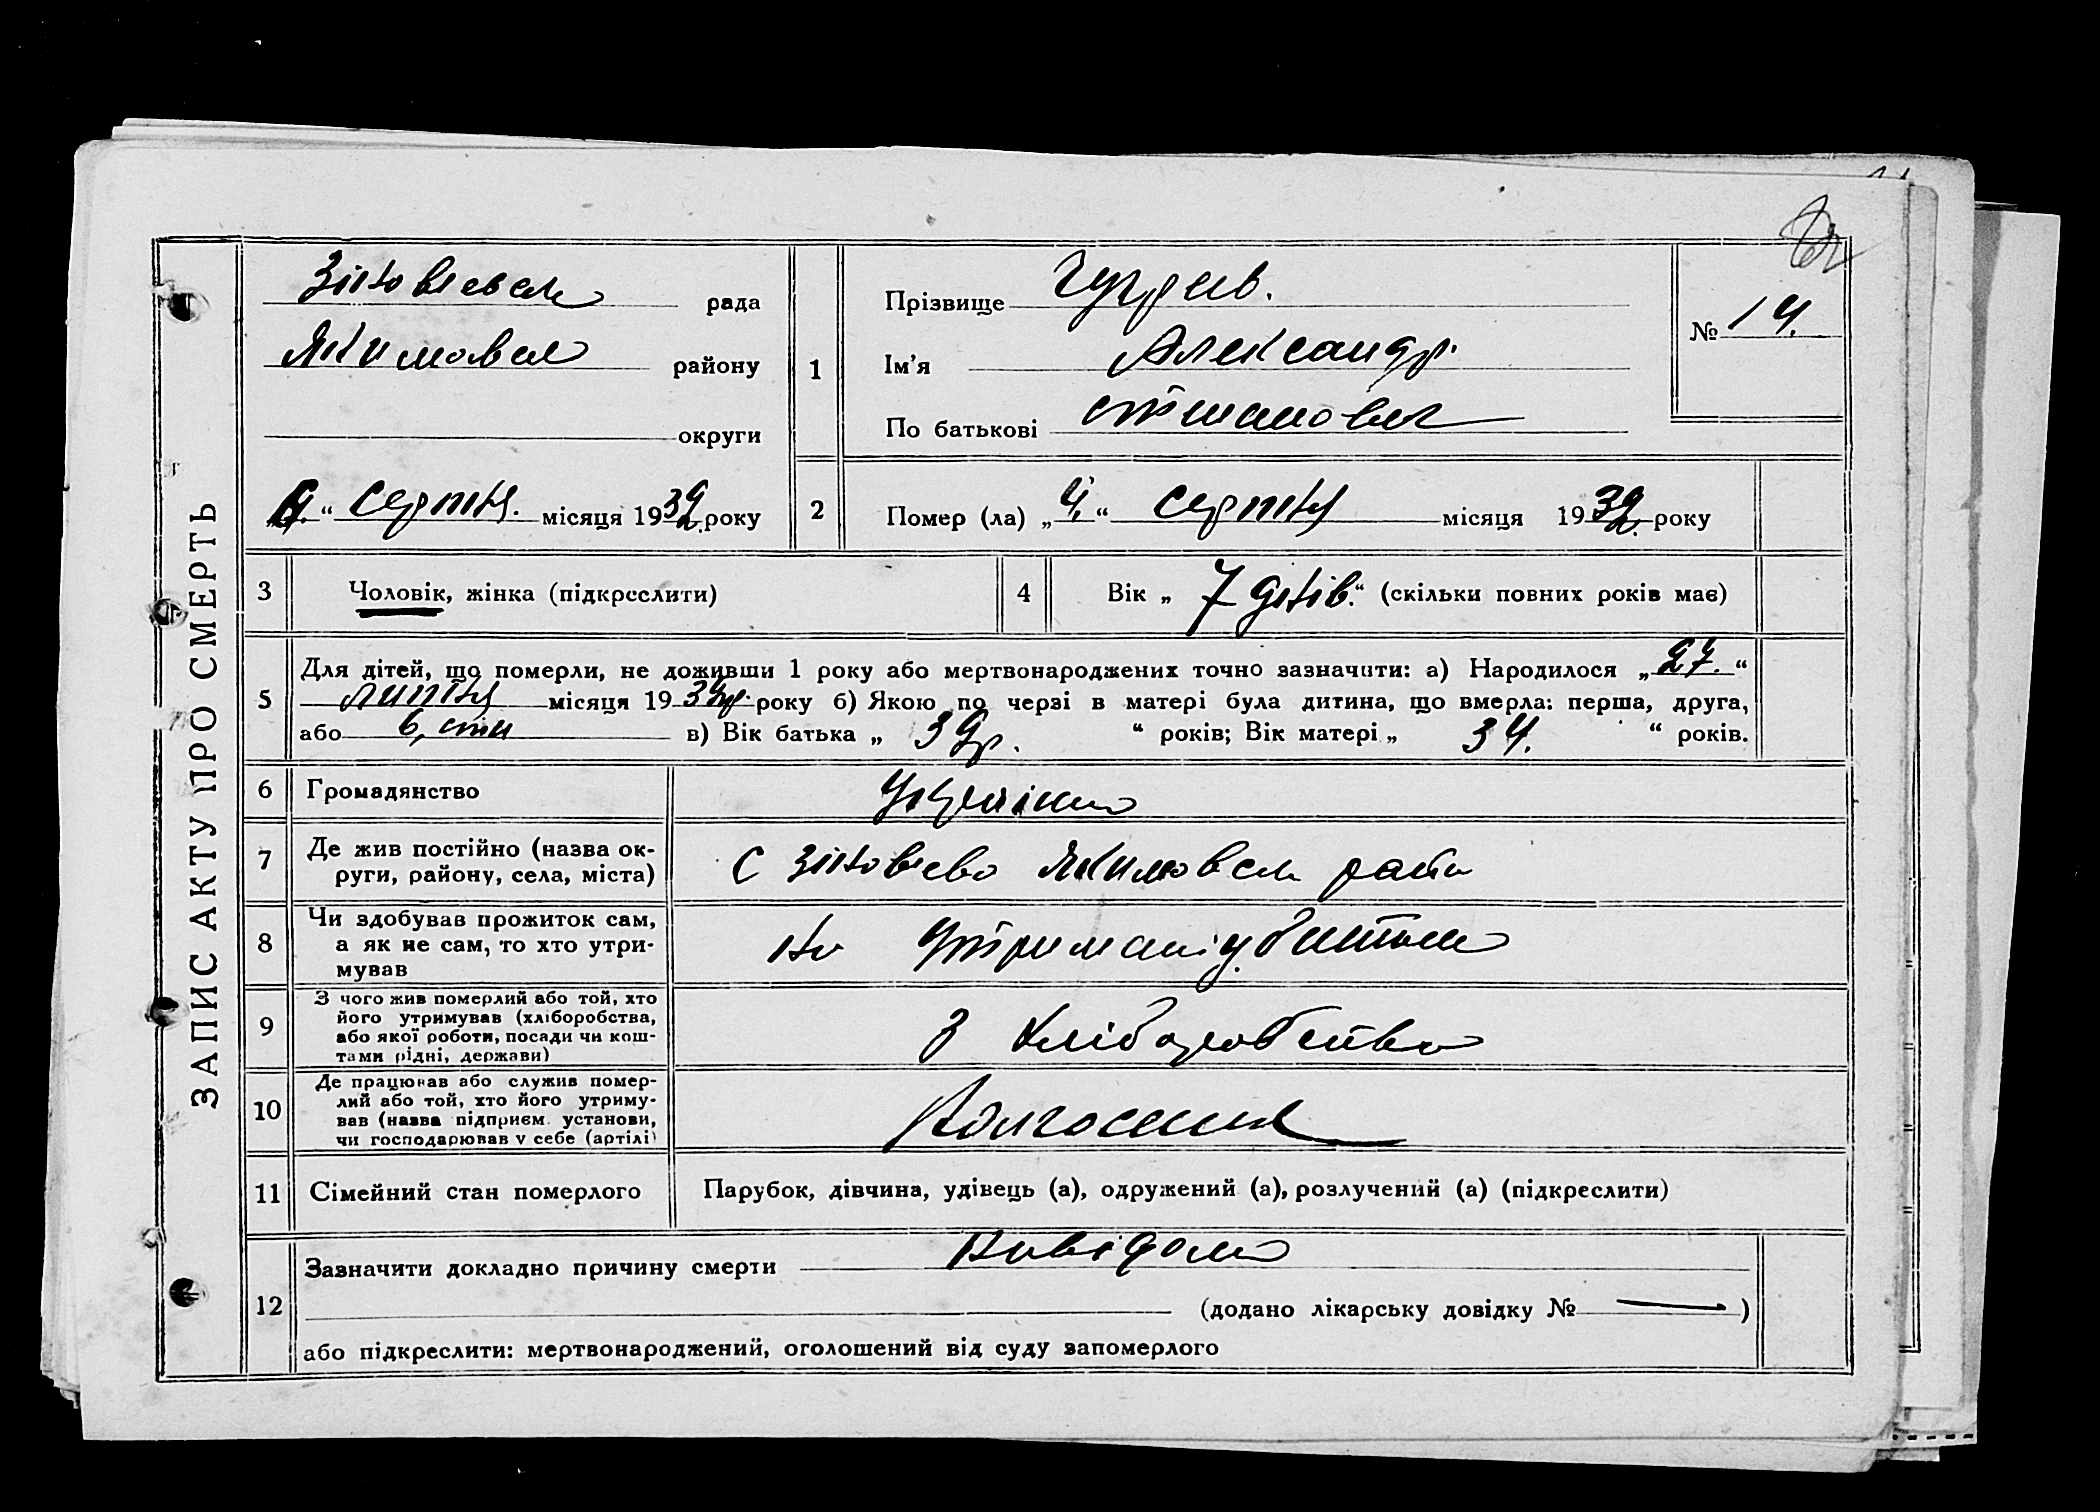 ЗАПИС АКТУ ПРО СМЕРТЬ
Зіновєвськ рада
Якимовськ району
округи
„4.“ серпня. місяця 1932 року
1
Прізвище
Ім'я Александр.
По батькові
№ 14.
2
Помер (ла) „4.“ серпня місяця 1932. року
3
Чоловік, жінка (підкреслити)
4
Вік „7 днів.“ (скільки повних років має)
5
Для дітей, що померли, не доживши 1 року або мертвонароджених точно зазначити: а) Народилося „27.“
липня місяця 1932р. року б) Якою по черзі в матері була дитина, що вмерла: перша, друга,
або 6, сти в) Вік батька „ 39р. “ років; Вік матері „ 34. “ років.
6
Громадянство
7
Де жив постійно (назва ок-
руги, району, села, міста)
С Зіновєво Якимовськ
8
Чи здобував прожиток сам,
а як не сам, то хто утри-
мував
на утримані у батька
9
З чого жив померлий або той, хто
його утримував (хліборобства,
або якої роботи, посади чи кош-
тами рідні, держави)
З хліборобства
10
Де працював або служив помер-
лий або той, хто його утриму-
вав (назва підприєм. установи,
чи господарював у себе (артілі)
Колгоспник
11
Сімейний стан померлого
Парубок, дівчина, удівець (а), одружений (а), розлучений (а) (підкреслити)
12
Зазначити докладно причину смерти Невідомо
(додано лікарську довідку № —)
або підкреслити: мертвонароджений, оголошений від суду запомерлого